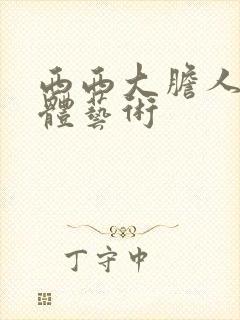 西西大膽人
體藝術
丁守中